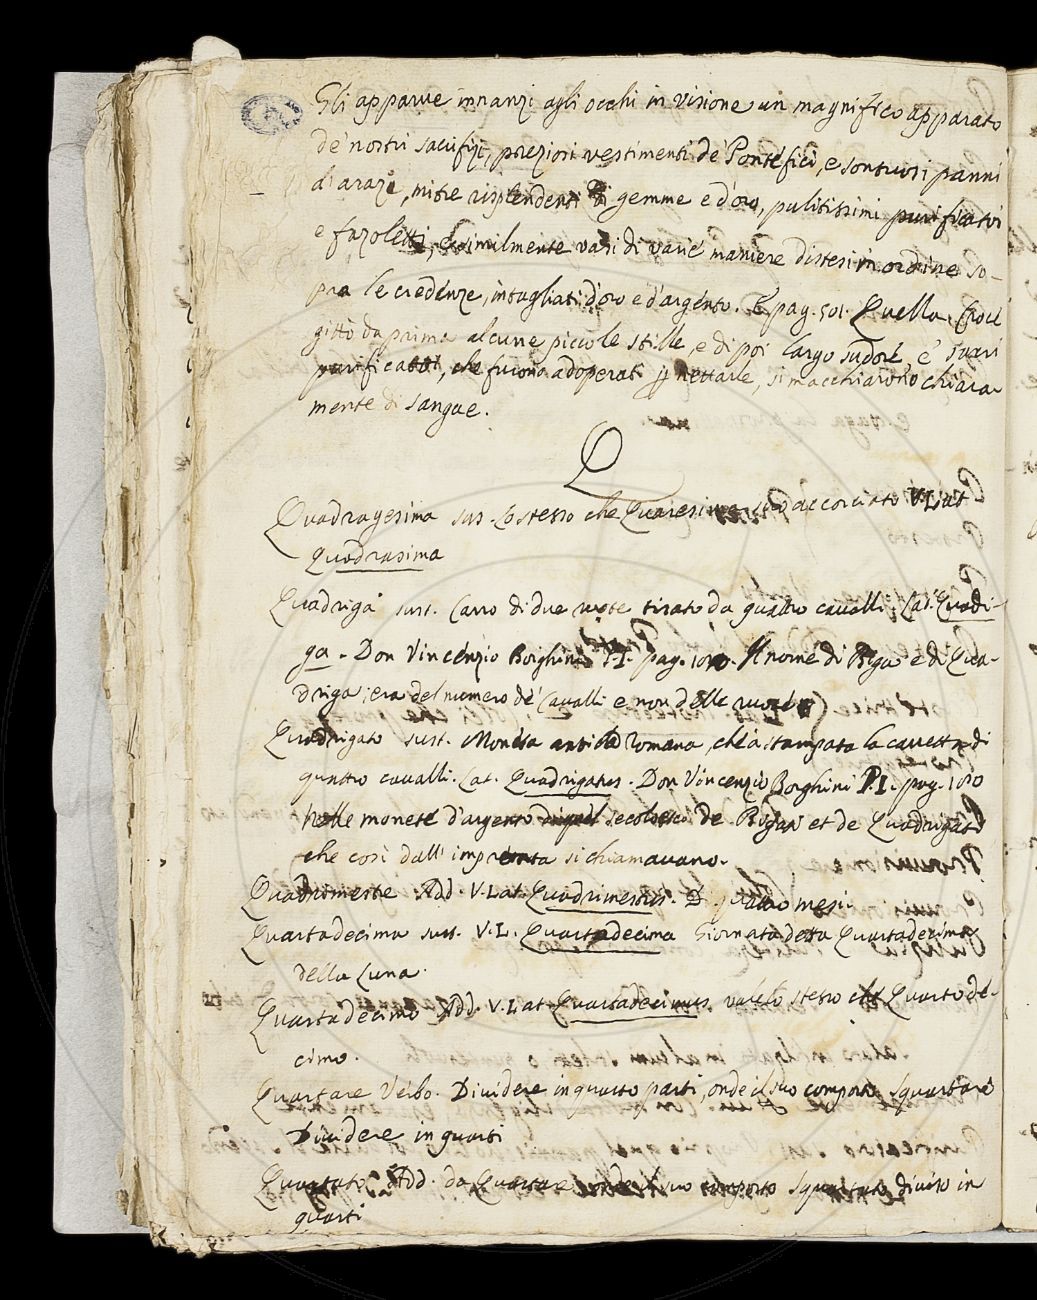 Gli apparve innanzi agli occhi in visione un magnifico apparato
de' nostri sacrifizj, preziosi vestimenti de' Pontefici, e sontuosi panni
di arazi, mitre risplendenti di gemme e d'oro, pulitissimi purificatoi
e fazoletti, e similmente vasi di varie maniere distesi in ordine so-
pra le credenze, intagliati d'oro e d'argento. E pag. 501. Quella Croce
gittò da prima alcune piccole stille, e di poi largo sudore, e i
purificatoi, che furono adoperati p nettarle, si macchiarono chiara-
mente di sangue.
Q
Quadragesima sus. Lo stesso che Quaresima accorciato V. Lat
Quadrasima
Quadriga sust. Carro di due ruote tirato da quattro cavalli, Lat. Quadri-
ga. Don Vincenzio Borghini P. I. pag. Il nome di Biga e di Qua-
driga, era del numero de' Cavalli e non delle ruote
Quadrigato sust. Moneta antica Romana, ch'è stampata la caretta di
quattro cavalli. Lat. Quadrigatus. Don Vincenzio Borghini P. I. pag. 180
Nelle monete d'argento di quel secolo de Bigati et de Quadrigati
che così dall' impronta si chiamavano.
Quadrimestre Add. V. Lat. Quadrimestris. Di quattro mesi.
Quartadecima sust. V. L. Quartadecima Giornata detta Quartadecima
della Luna.
Quartadecimo Add. V. Lat Quartadecimus, vale lo stesso che Quarto de-
cimo.
Quartare Verbo. Dividere in quarto parti, onde il suo composto Squartare
Dividere in quarti
Quartato Add. da Quartare onde il suo composto Squartato diviso in
quarti